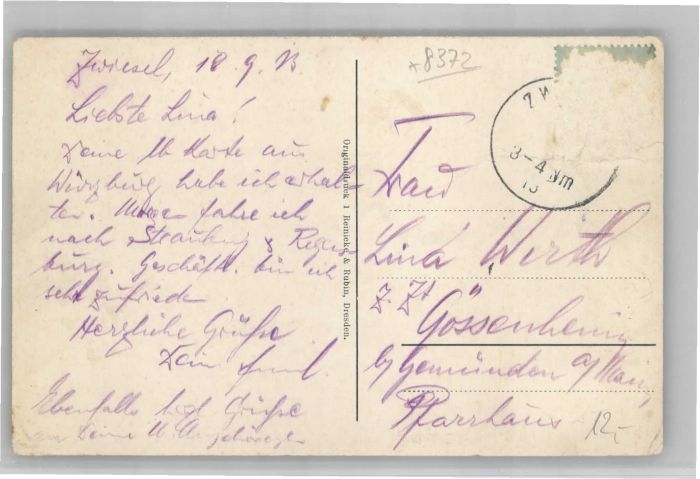 Zwiesel, 18.9.13
Liebste Lina!
Deine lb Karte aus
Würzburg habe ich erhal-
ten. fahre ich
nach Straubing & Regens-
burg. Geschäftl. bin ich
sehr zufrieden
Herzliche Grüße
Dein
Ebenfalls herzl Grüße
an Deine lb. Angehörigen
Originaldruck 1 Reinicke & Rubin, Dresden.
+8372
ZW
3-4 Nm
13
Frau
Lina Werth
z. Zt
Gössenheim
b/ Gemünden a/ Main,
Pfarrhaus
12,-